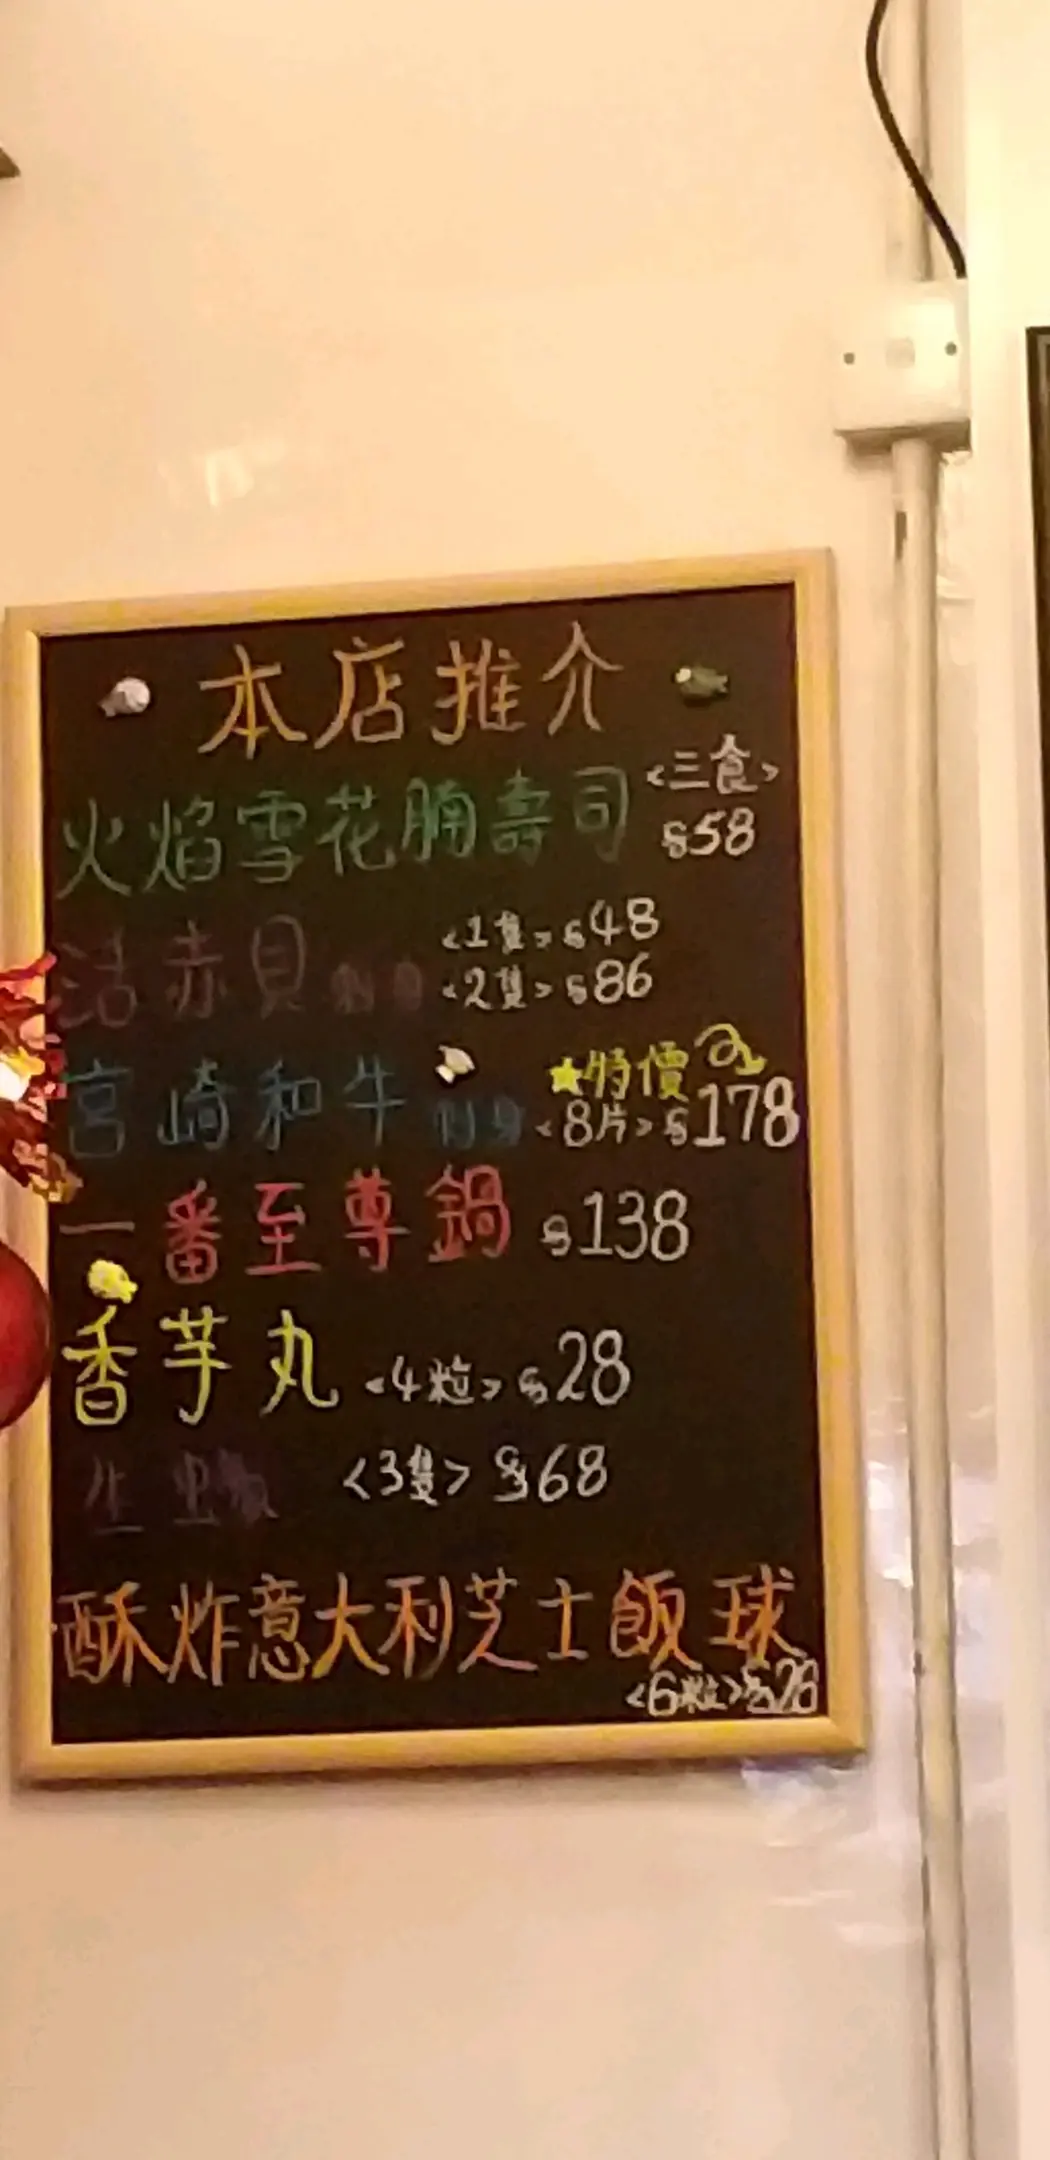 本店推介
火焰雪花腩壽司 <三食> $58
活赤貝刺身 <1隻> $48
<2隻> $86
宮崎和牛刺身 ★特價
<8片> $178
一番至尊鍋 $138
香芋丸 <4粒> $28
生蠔 <3隻> $68
酥炸意大利芝士飯球
<6粒> $28